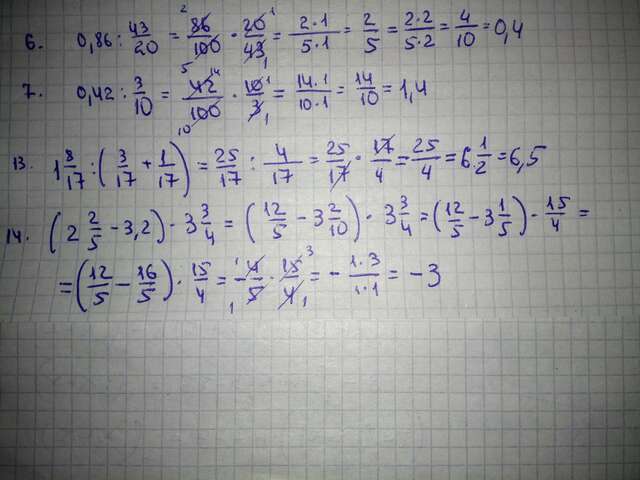 6. 0,86 : 43/20 = 86/100 · 20/43 = 2·1/5·1 = 2/5 = 2·2/5·2 = 4/10 = 0,4
7. 0,42 : 3/10 = 42/100 · 10/3 = 14·1/10·1 = 14/10 = 1,4
13. 1 8/17 : (3/17 + 1/17) = 25/17 : 4/17 = 25/17 · 17/4 = 25/4 = 6 1/2 = 6,5
14. (2 2/5 - 3,2) · 3 3/4 = (12/5 - 3 2/10) · 3 3/4 = (12/5 - 3 1/5) · 15/4 =
= (12/5 - 16/5) · 15/4 = - 4/5 · 15/4 = - 1·3/1·1 = -3